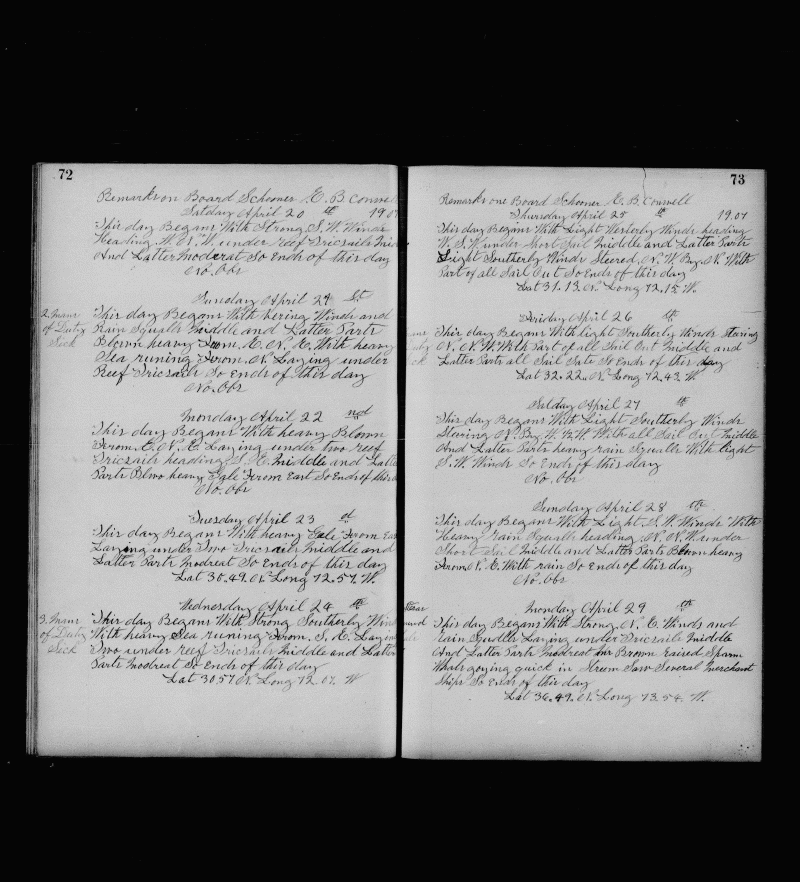 72
Remarks on Board Schooner E. B. Conwell
Satday April 20 th 1901
This day Began With Strong S. W. Winds
Heading W. N. W. under reef Tricsails Mid
And Latter Moderat So Ends of this day
No. Obs
Sunday April 21 St
2. Man
of Duty
Sick
This day Begans With Winds and
Rain Squalls Middle and Latter Parts
Blown heavy From E. N. E. With heavy
Sea runing From N. Laying under
Reef Tricsails So Ends of this day
No. Obs
Monday April 22 nd
This day Began With heavy Blown
From E. N. E. Laying under two reef
Tricsails heading S. E. Middle and Latte
Parts Blwo heavy Gale From East So Ends of this d
No. Obs
Tuesday April 23 d
This day Began With heavy Gale From Eas
Laying under Two Tricsails Middle and
Latter Parts Modreat So Ends of this day
Lat 30.49. N. Long 72.57. W.
Wednesday April 24 th
3. Man
of Duty
Sick
This day Began With Strong Southerly Wind
With heavy Sea runing From S. E. Laying
Two under reef Tricsails Middle and Latter
Parts Modreat So Ends of this day
Lat 30.57 N. Long 72.07. W
73
Remarks one Board Schooner E. B. Conwell
Thursday April 25 th 1901
This day Began With Light Westerly Winds heading
W. S. W. under Short Sail Middle and Latter Parts
Light Southerly Winds Steered N. W. By. N. With
Part of all Sail Out So Ends of this day
Lat 31.13 N. Long 72.15 W.
Friday April 26 th
This day Began With light Southerly Winds Staring
N. N. W. With Part of all Sail Out Middle and
Latter Parts all Sail Sate So Ends of this day
Lat 32.22. N. Long 72.43. W.
Satday April 27 th
This day Began With Light Southerly Winds
Steering N. By. W. With all Sail Out Middle
And Latter Parts heavy rain Squalls With light
S. W. Winds So Ends of this day
No. Obs
Sunday April 28 th
This day Began With Light S. W. Winds With
Heavy rain Squalls heading N. N. W. under
Short Sail Middle and Latter Parts Blown heavy
From N. E. With rain So Ends of this day
No. Obs
Monday April 29 th
This day Began With Strong N. E. Winds and
Rain Squalls Laying under Tricsails Middle
And Latter Parts Modreat Mr Brown raised Sparm
Whals goying quick in Saw Several Merchant
Ships So Ends of this day
Lat 36.49. N. Long 73.54. W.